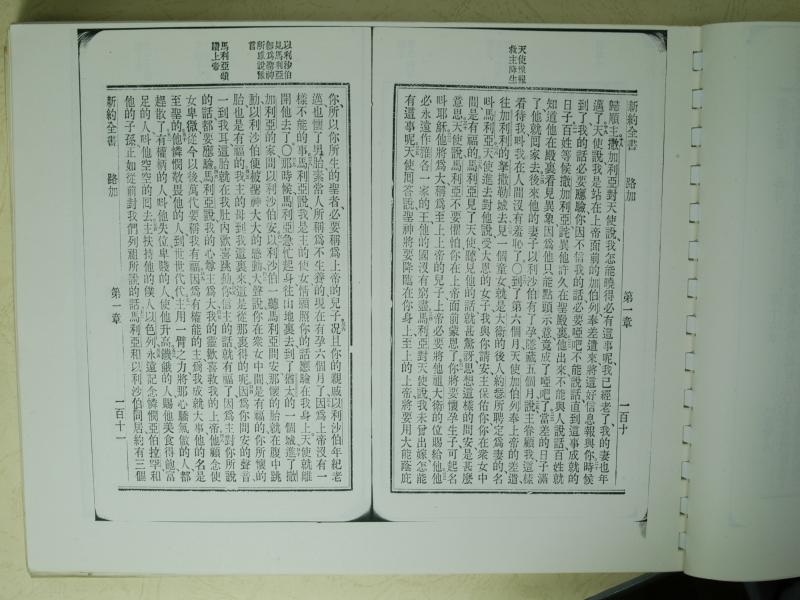 新約全書 路加 第一章 一百十
天使預報
救主降生
歸順主撒加利亞對天使說我怎能曉得必有這事呢我已經老了我的妻也年
邁了天使說我是站在上帝面前的加伯列奉差遣來將這好信息報與你時候
到了我的話必要應驗你因不信我的話必要啞吧不能說話直到這事成就的
日子百姓等候撒加利亞詫異他許久在聖殿裏他出來不能與人說話百姓就
知道他在殿裏看見異象因爲他只能點頭示意竟成了啞吧了當差的日子滿
了他就囘家去後來他的妻子以利沙伯有了孕隱藏五個月說主眷顧我這樣
看待我叫我在人間沒有羞恥了〇到了第六個月天使加伯列奉上帝的差遣
往加利利的拿撒勒城去見一個童女就是大衛的後人約瑟所聘定爲妻的名
叫馬利亞天使進去對他說受大恩的女子我與你請安主保佑你你在衆女中
間是有福的馬利亞見了天使聽見他的話就甚驚訝思想這樣的問安是甚麼
意思天使說馬利亞不要懼怕你在上帝面前蒙恩了你將要懷孕生子可起名
叫耶穌他將爲大稱爲至上上帝的兒子上帝必要將他祖大衛的位賜給他他
必永遠作雅各一家的王他的國沒有窮盡馬利亞對天使說我未曾出嫁怎能
有這事呢天使囘答說聖神將要降臨在你身上至上的上帝將要用大能蔭庇
以利沙伯
見馬利亞
所感說豫
言
馬利亞頌
讚上帝
你所以你所生的聖者必要稱爲上帝的兒子況且你的親戚以利沙伯年紀老
邁也懷了男胎素常人所稱爲不生養的現在有孕六個月了因爲上帝沒有一
樣不能的事馬利亞說我是主的使女情願照你的話應驗在我身上天使就離
開他去了〇那時候馬利亞急忙起身往山地裏去到了猶太的一個城進了撒
加利亞的家問以利沙伯安以利沙伯一聽馬利亞問安那懷的胎就在腹中跳
動以利沙伯便被聖神大大的感動大聲說你在衆女中間是有福的你所懷的
胎也是有福的我主的母到我這裏來這是從那裏得的呢因爲你問安的聲音
一到我耳這胎就在我肚內歡喜跳動你信主的話就有福了因爲主對你所說
的話都要應驗馬利亞說我的心尊主爲大我的靈歡喜救我的上帝他顧念使
女卑微從今以後萬代要稱我有福因爲有權能的主爲我成就大事他的名是
至聖的他憐憫敬畏他的人到世世代代主用一臂之力將那心驕氣傲的人都
趕散了有權柄的人叫他失位卑賤的人使他升高饑餓的人賜他美食得飽富
足的人叫他空空的囘去主扶持他的僕人以色列永遠記念憐憫亞伯拉罕和
他的子孫正如從前對我們列祖所說的話馬利亞和以利沙伯同居約有三個
新約全書 路加 第一章 一百十一